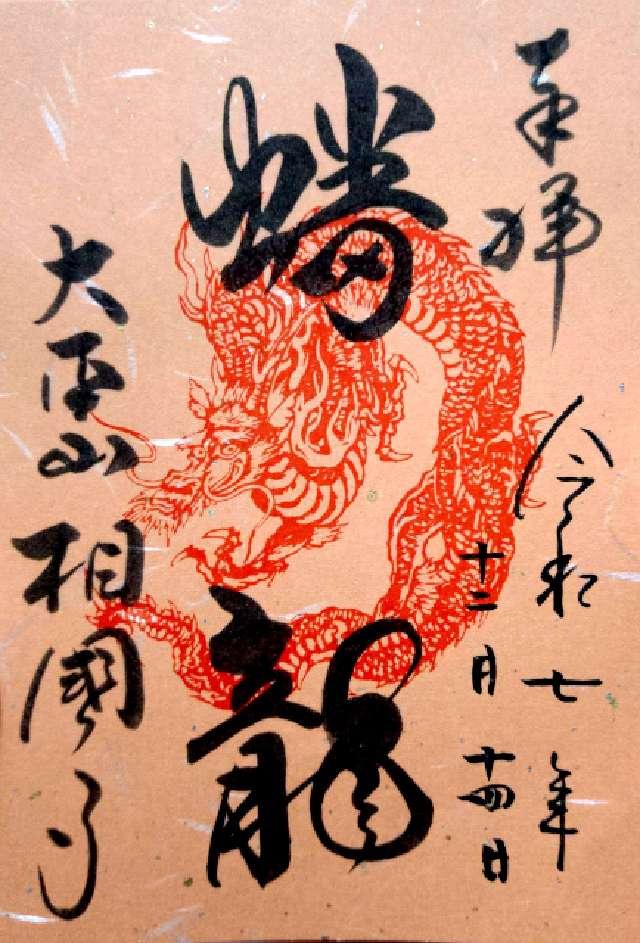 奉拝
令和七年
十二月十四日
蟠龍
大本山相國寺